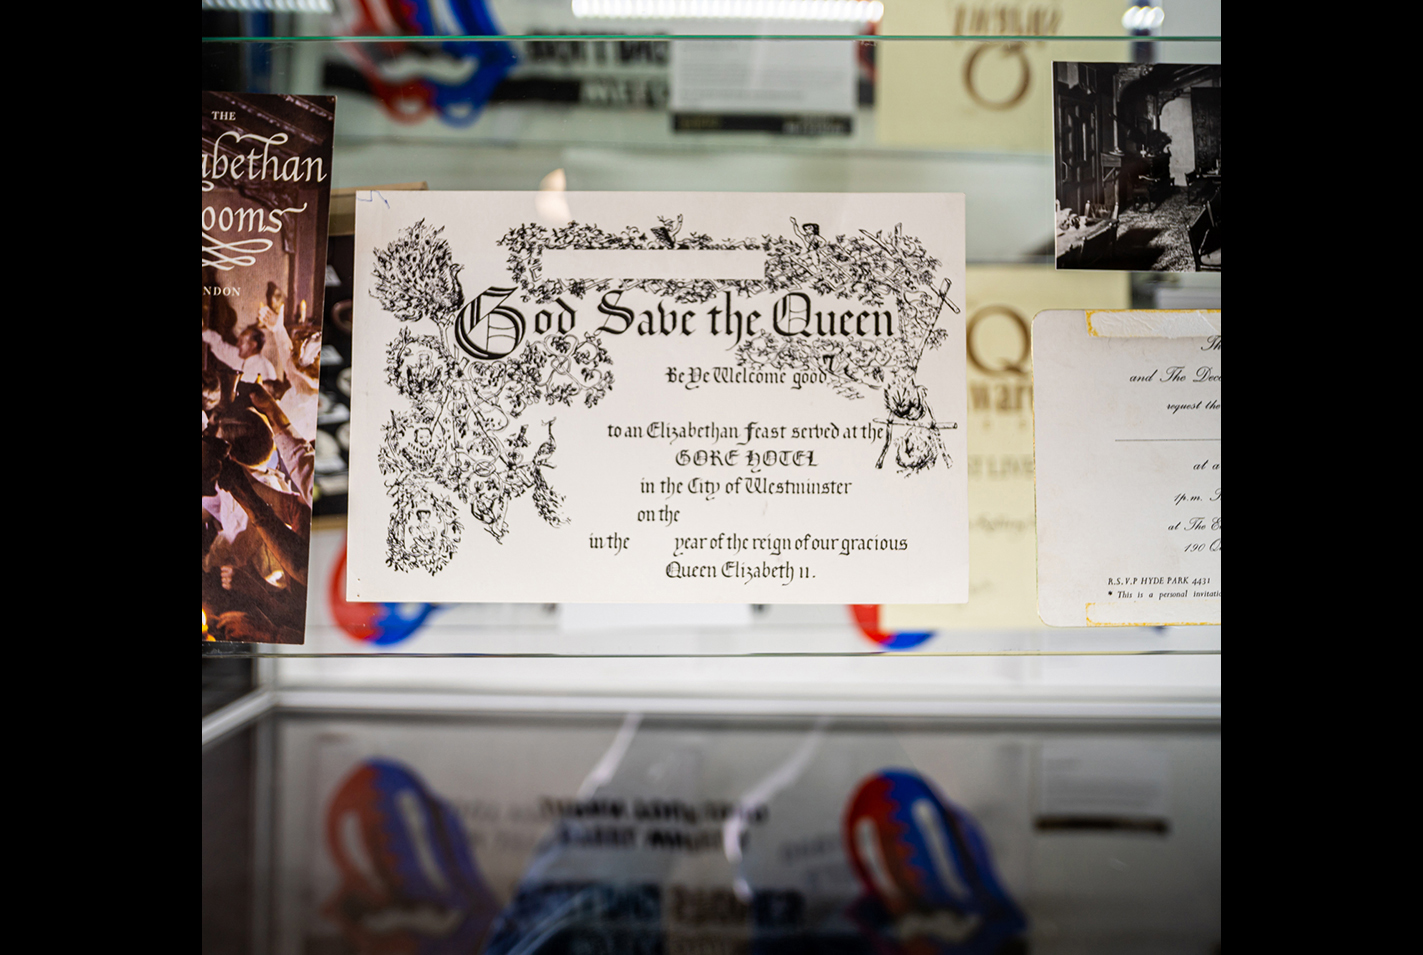 THE
abethan
ooms
NDON
God Save the Queen
Be Ye Welcome good
to an Elizabethan Feast served at the
GORE HOTEL
in the City of Westminster
on the
in the year of the reign of our gracious
Queen Elizabeth II.
and The
request the
at a
1p.m.
at The
190
R.S.V.P HYDE PARK 4431
* This is a personal